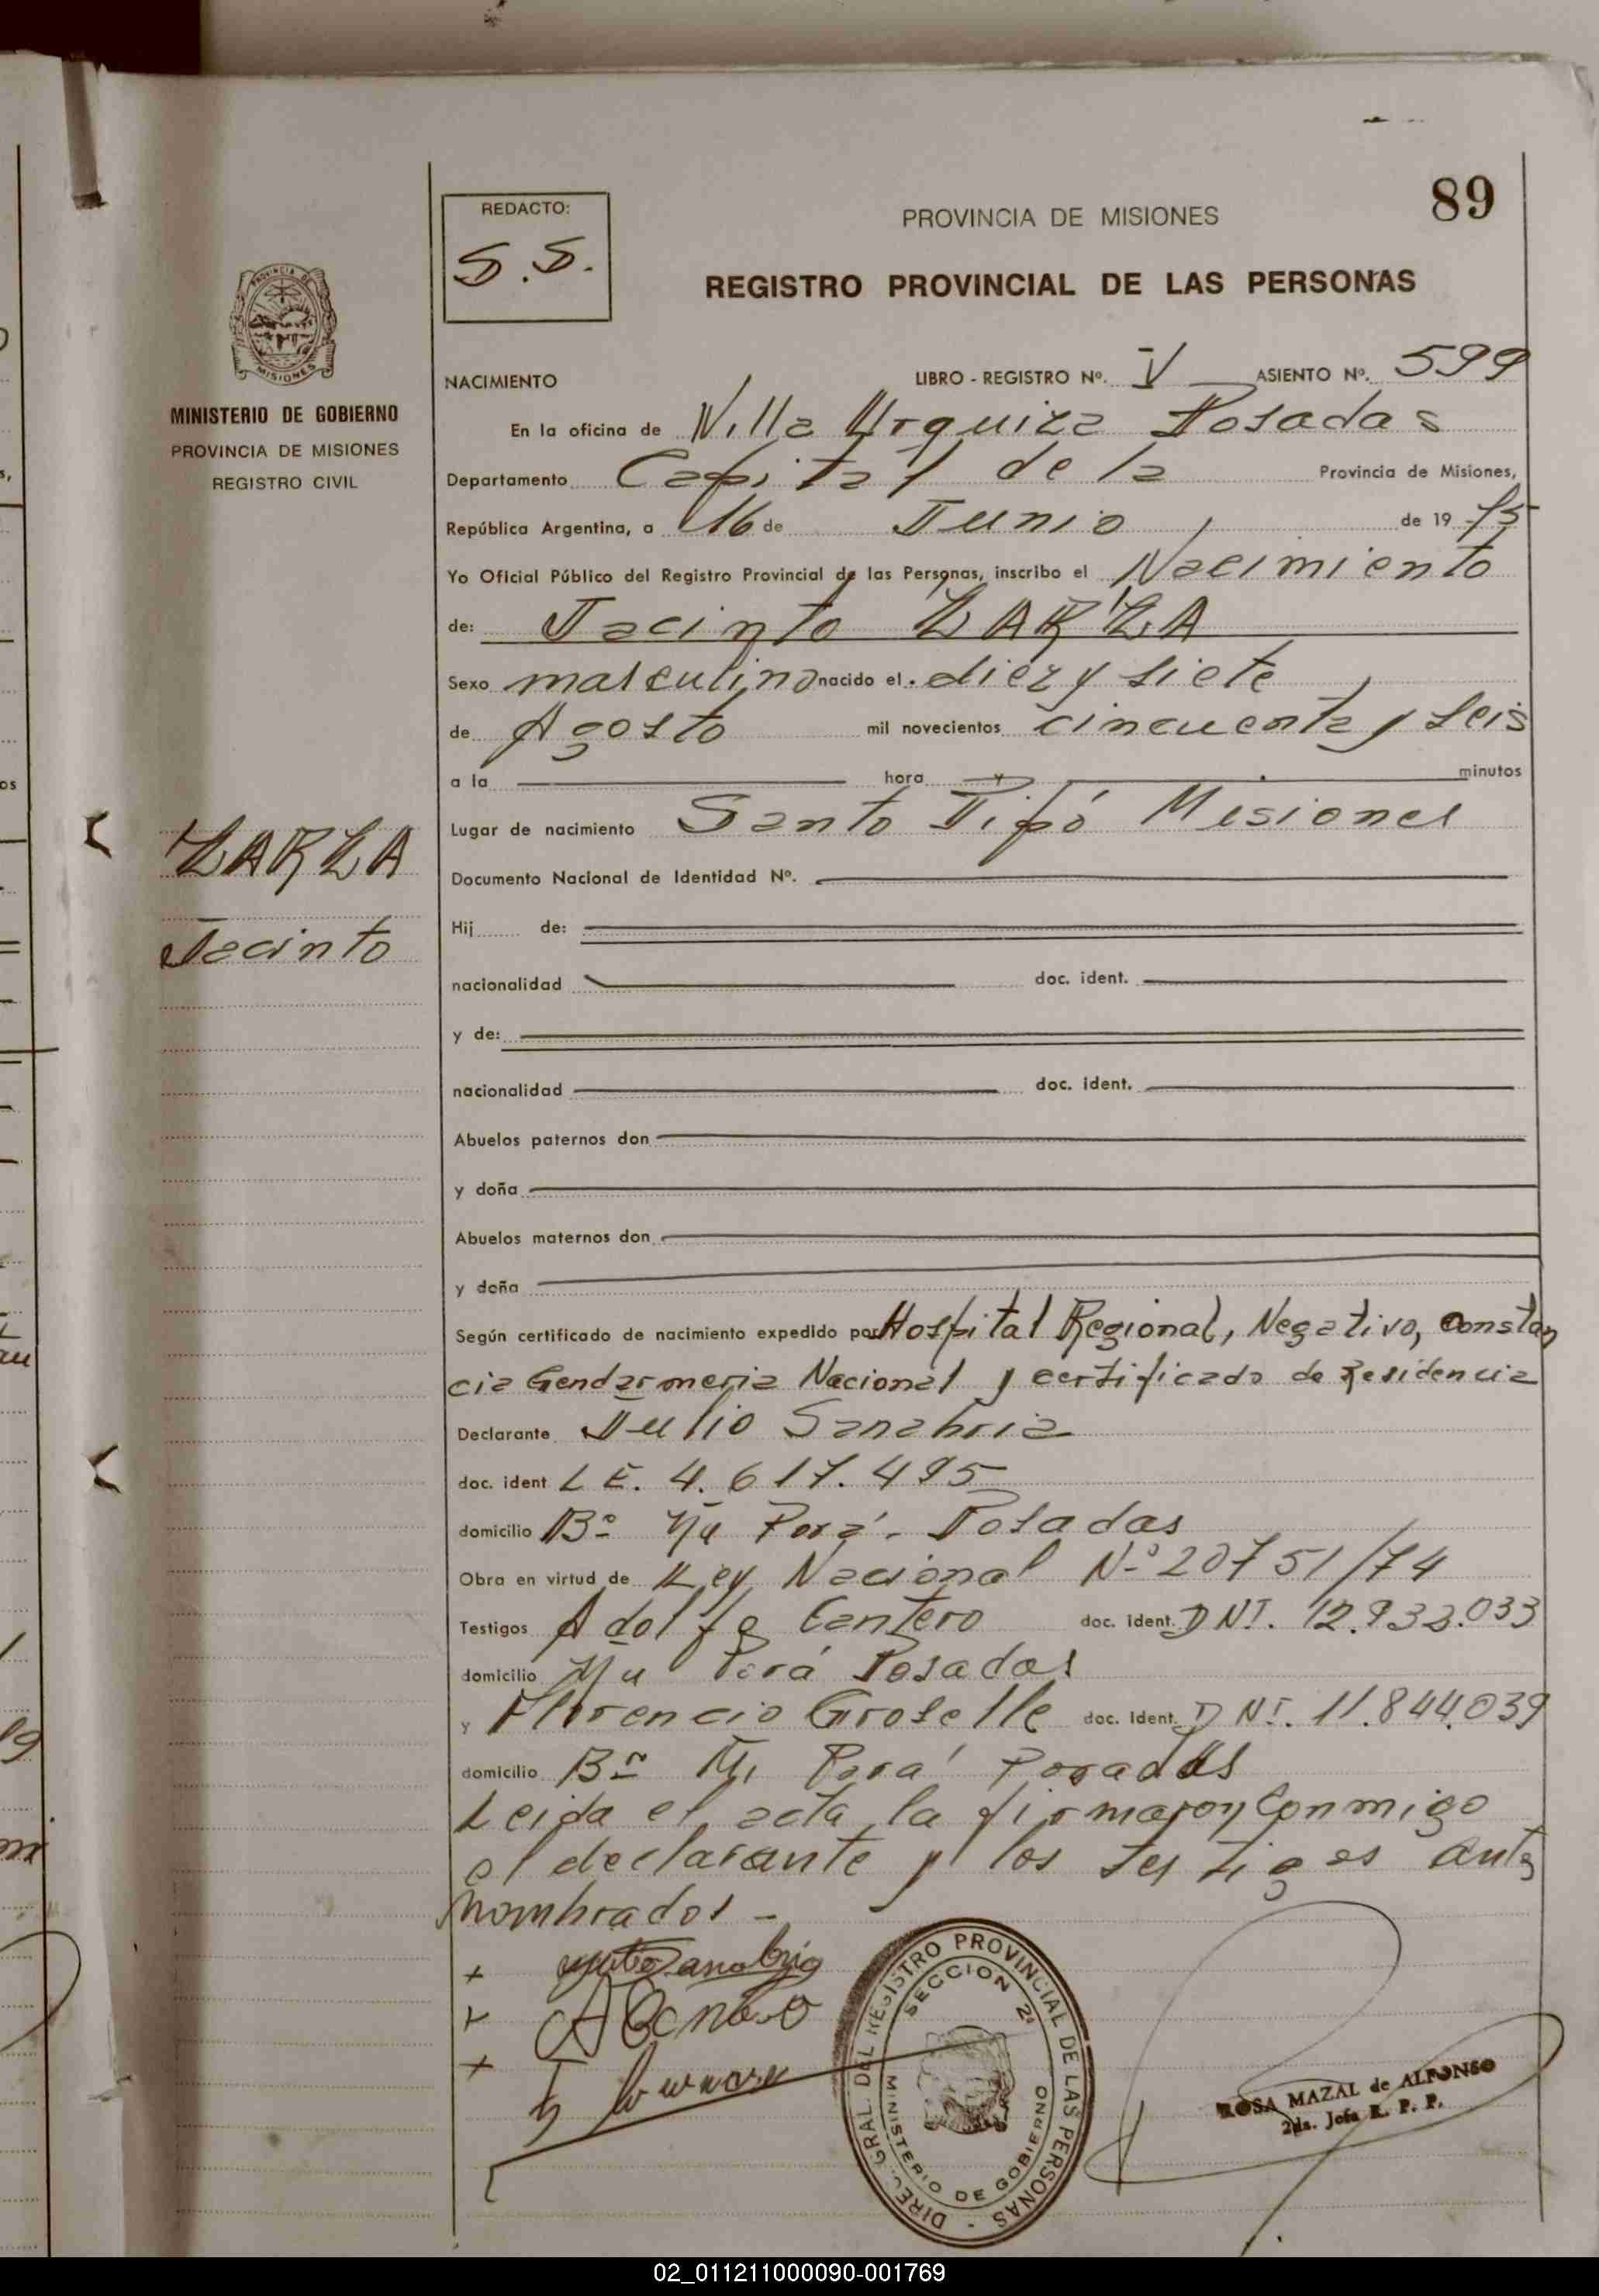 89
REDACTO:
S.S.
PROVINCIA DE MISIONES
REGISTRO PROVINCIAL DE LAS PERSONAS
PROVINCIA DE MISIONES
MINISTERIO DE GOBIERNO
PROVINCIA DE MISIONES
REGISTRO CIVIL
NACIMIENTO LIBRO - REGISTRO Nº. V ASIENTO Nº. 599
En la oficina de Villa Urquiza Posadas
Departamento Capital de la Provincia de Misiones,
República Argentina, a 16 de Junio de 19 75
Yo Oficial Público del Registro Provincial de las Personas, inscribo el Nacimiento
de: Jacinto ZARZA
Sexo masculino nacido el diez y siete
de Agosto mil novecientos cincuenta y seis
a la hora y minutos
Lugar de nacimiento Santo Pipó Misiones
ZARZA
Documento Nacional de Identidad Nº.
Jacinto
Hij de:
nacionalidad doc. ident.
y de:
nacionalidad doc. ident.
Abuelos paternos don
y doña
Abuelos maternos don
y doña
Según certificado de nacimiento expedido por Hospital Regional, Negativo, constan
cia Gendarmeria Nacional y certificado de Residencia
Declarante Julio Sanabria
doc. ident L E. 4.617.495
domicilio Bº Ñu Porá. Posadas
Obra en virtud de Ley Nacional Nº 20751/74
Testigos Adolfo Cantero doc. ident. DNI. 12.933.033
domicilio Ñu Porá Posadas
y Florencio Groselle doc. Ident. DNI. 11.844.039
domicilio Bº Ñu Porá Posadas
Leida el acta la firmaron conmigo
el declarante y los testigos ante
nombrados -
DIREC. GRAL. DEL REGISTRO PROVINCIAL DE LAS PERSONAS -
SECCION 2ª
MINISTERIO DE GOBIERNO
ROSA MAZAL de ALFONSO
2da. Jefa R. P. P.
02_011211000090-001769